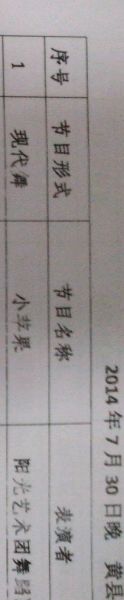 2014年7月30日晚 黄县
序号 节目形式 节目名称 表演者
1 现代舞 小苹果 阳光艺术团舞蹈